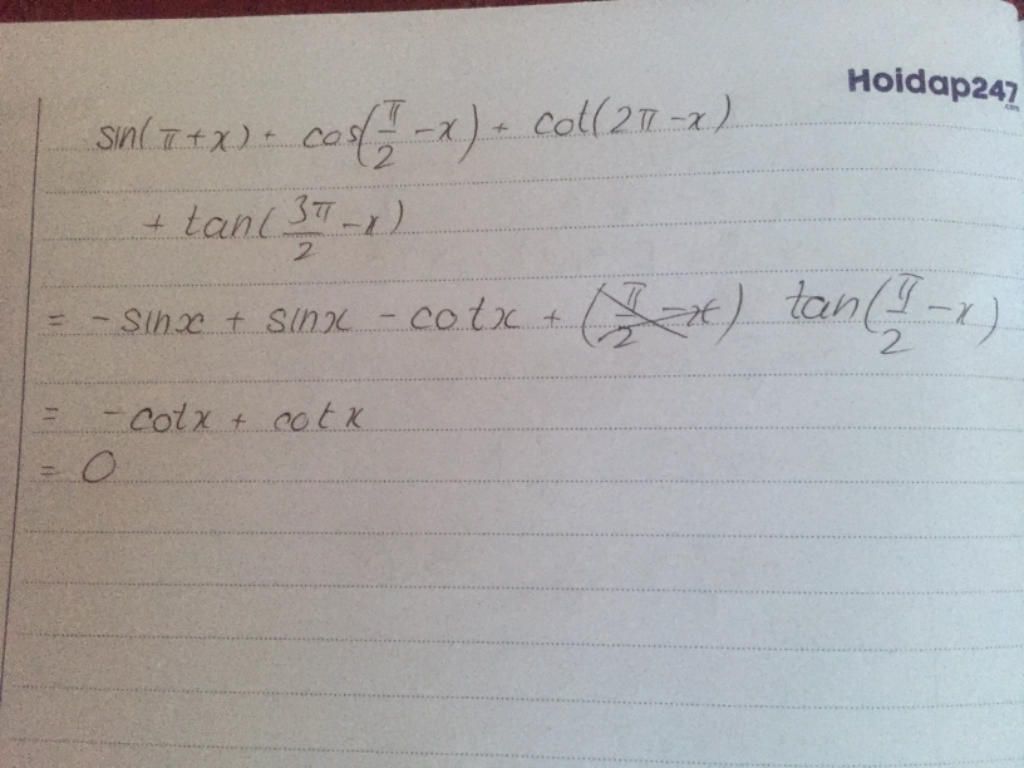 Hoidap247
.com
sin(π+x) + cos(π/2 -x) + cot(2π -x)
+ tan(3π/2 -x)
= - sinx + sinx - cotx + (π/2 -x) tan(π/2 -x)
= - cotx + cotx
= 0